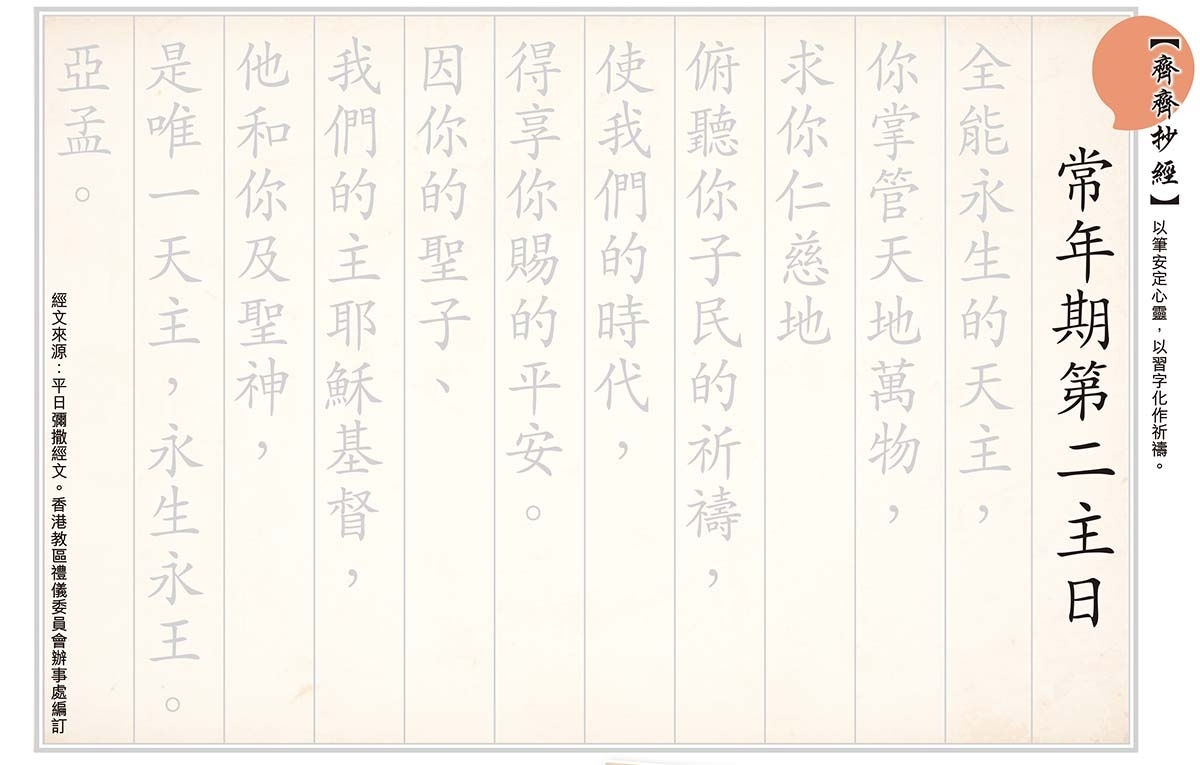 【齊齊抄經】以筆安定心靈，以習字化作祈禱。
常年期第二主日
全能永生的天主，
你掌管天地萬物，
求你仁慈地
俯聽你子民的祈禱，
使我們的時代，
得享你賜的平安。
因你的聖子、
我們的主耶穌基督，
他和你及聖神，
是唯一天主，永生永王。
亞孟。
經文來源：平日彌撒經文。香港教區禮儀委員會辦事處編訂